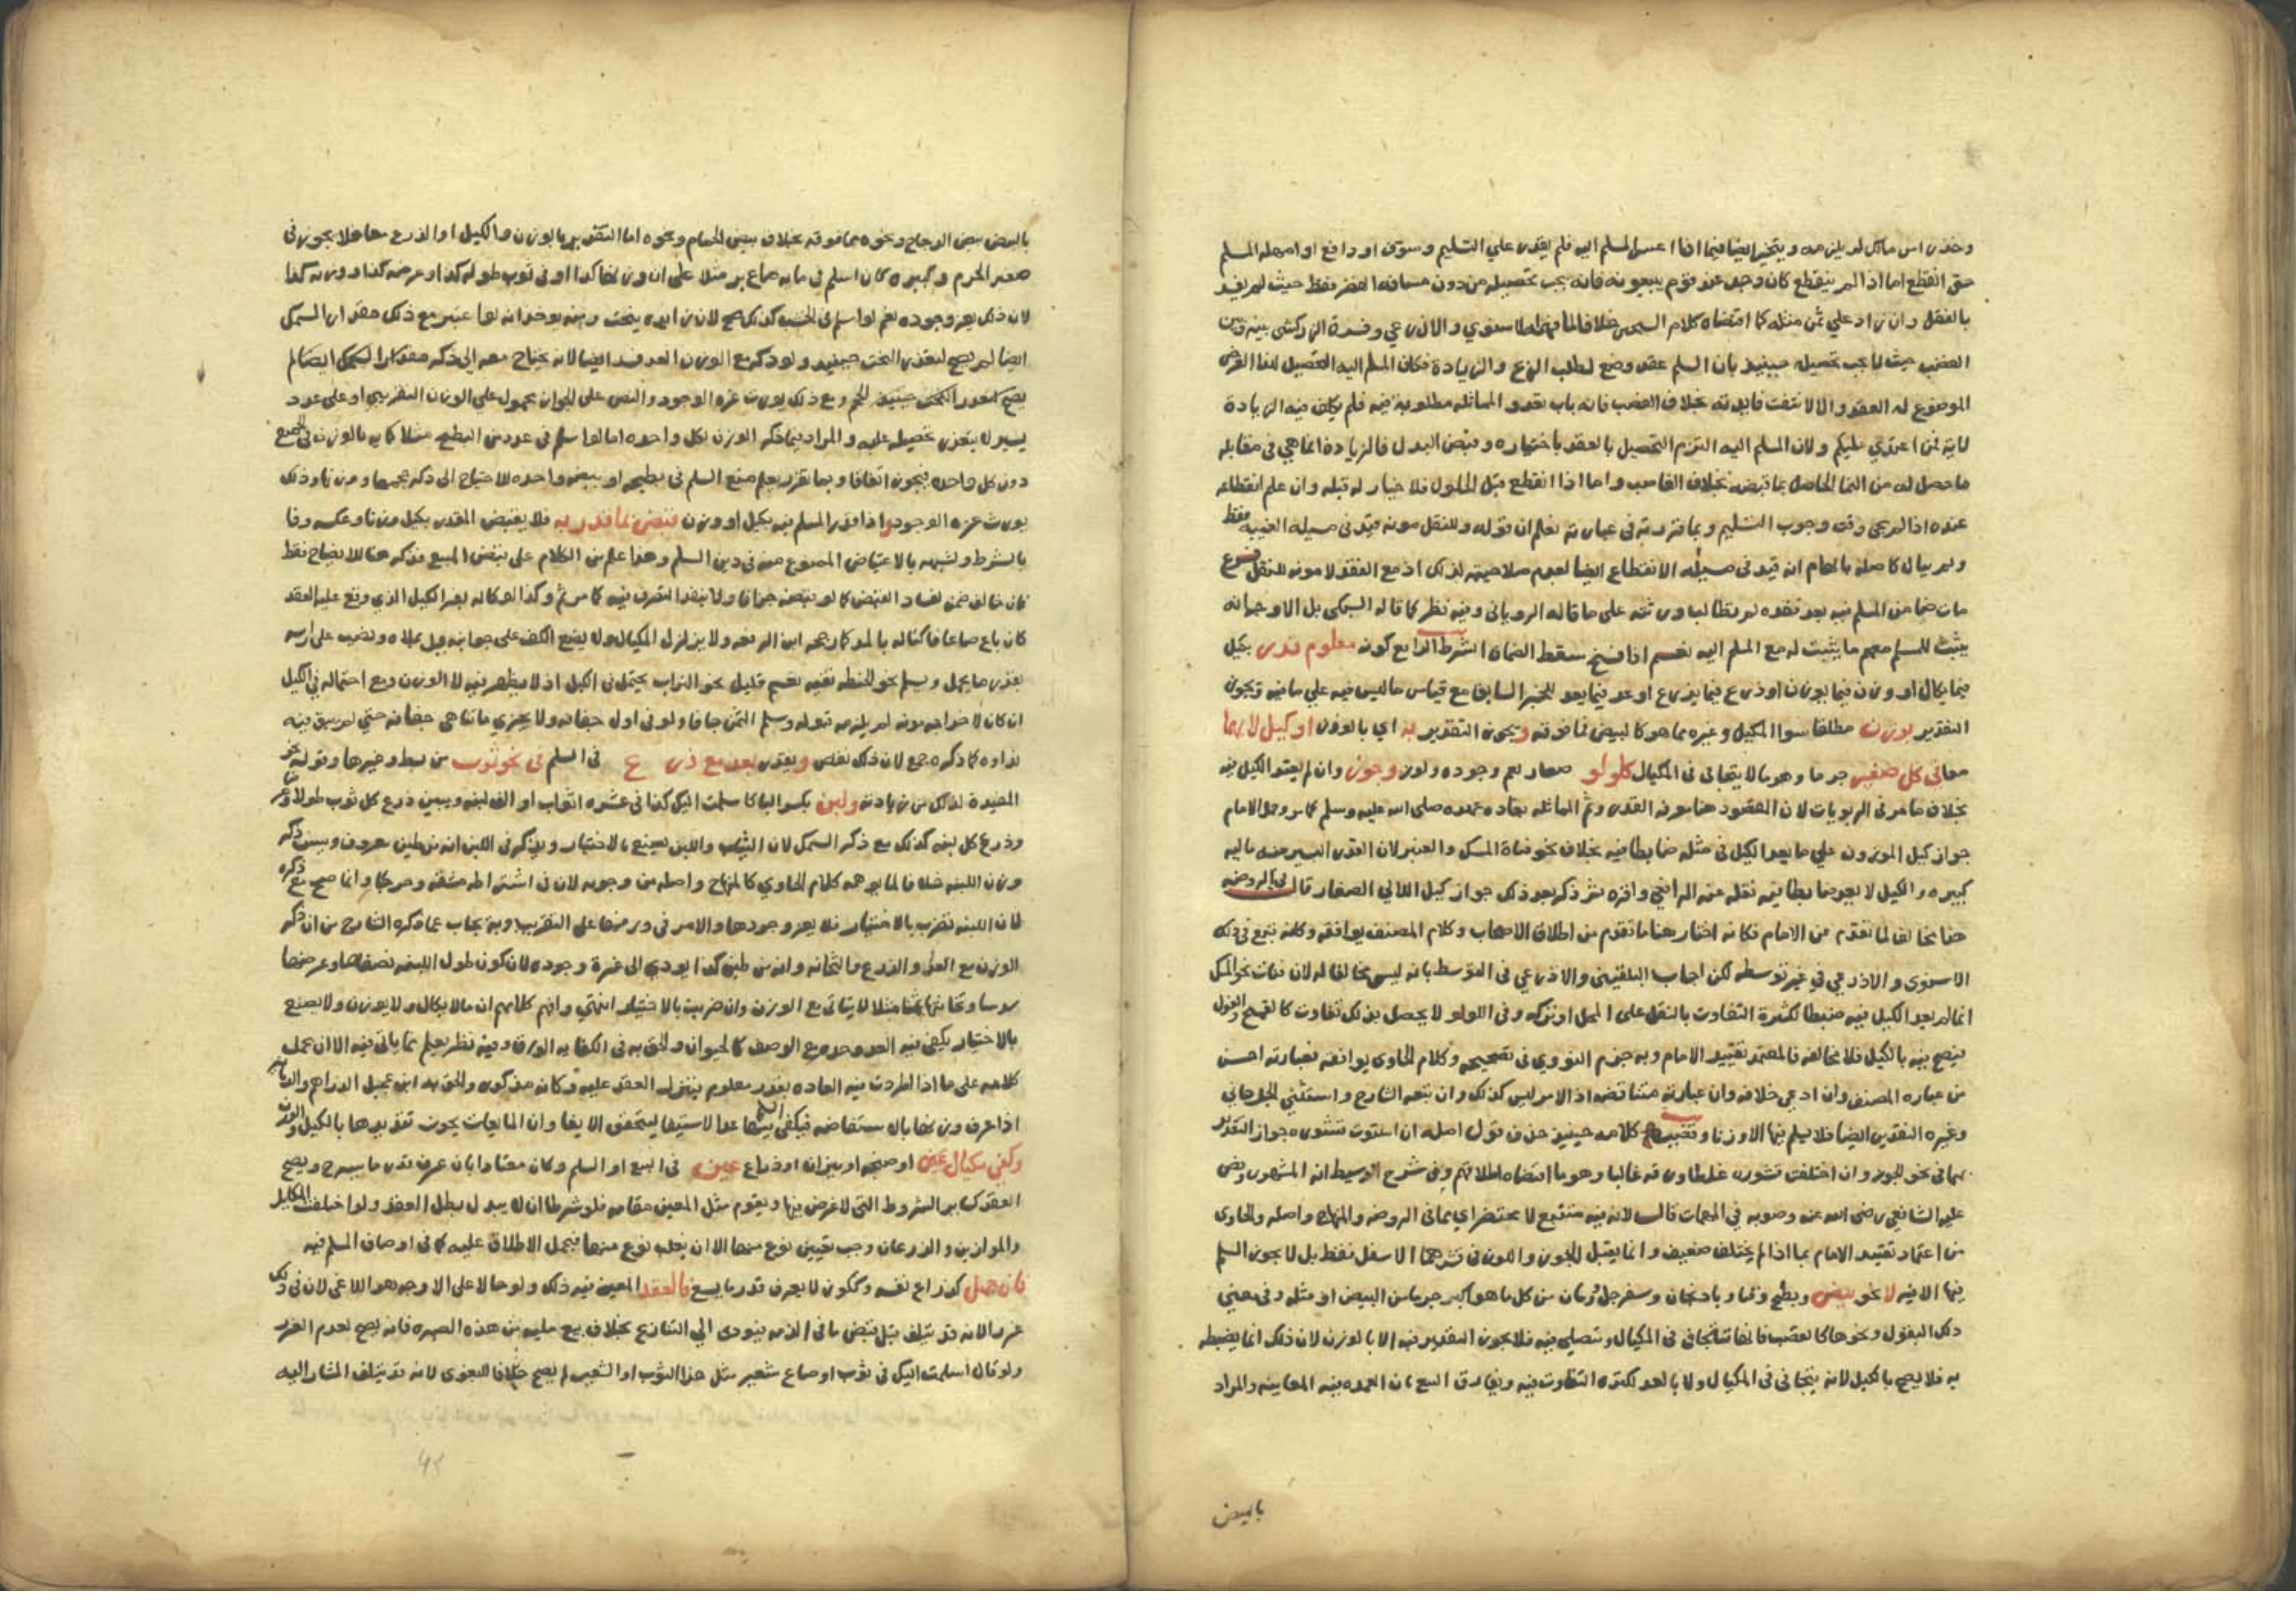 وخذ راس مالك لم يلزمه ويتخير ايضا فيما اذا اعسر المسلم اليه فلم يقدر علي التسليم وسوف او دافع او امهله المسلم
حتى انقطع اما اذا لم ينقطع كان وجد عند قوم يبيعونه فانه يجب تحصيله من دون مسافة القصر فقط حيث لم يفد
بالنقل وان زاد علي ثمن مثله كما اقتضاه كلام الشيخين خلافا لما فهمه الاسنوي والاذرعي وفرق الزركشي بينه وبين
الغصب حيث لا يجب تحصيله حينيذ بان السلم عقد وضع لطلب الربح والزيادة فكلف المسلم اليه التحصيل لهذا الغرض
الموضوع له العقد والا لانتفت فايدته بخلاف الغصب فانه باب تعد والمماثلة مطلوبة فيه فلم يكلف فيه الزيادة
لاية فمن اعتدي عليكم ولان المسلم اليه التزم التحصيل بالعقد باختياره وقبض البدل فالزيادة انما هي في مقابلة
ما حصل له من النما الحاصل بما قبضه بخلاف الغاصب واما اذا انقطع قبل الحلول فلا خيار له قبله وان علم انقطاعه
عنده اذ لم يجي وقت وجوب التسليم وبما قررته في عبارته تعلم ان قوله وللنقل مونة قيد في مسيلة الغيبة فقط
ولم يبال كاصله بايهام انه قيد في مسيلة الانقطاع ايضا لعدم صلاحيته لذلك اذ مع الفقد لا مونة للنقل فرع
مات ضامن المسلم فيه بعد فقده لم يطالب وارثه على ما قاله الروياني وفيه نظر كما قاله السبكي بل الاوجه انه
يثبت للمسلم معهم ما يثبت له مع المسلم اليه نعم اذا فسخ سقط الضمان الشرط الرابع كونه معلوم قدر بكيل
فيما يكال او وزن فيما يوزن او ذرع فيما يذرع او عد فيما يعد للخبر السابق مع قياس ما ليس فيه علي ما فيه ويجوز
التقدير بوزن مطلقا سوا المكيل وغيره مما هو كالبيض فما فوقه ويجوز التقدير به اي بالوزن او كيل لا بهما
معا في كل صغير جرما وهو ما لا يتجافى في المكيال كلولو صغار يعم وجوده ولوز وجوز وان لم يعتد الكيل فيه
بخلاف ما مر في الربويات لان المقصود هنا معرفة القدر وثم المماثلة بعادة عهده صلى الله عليه وسلم كما مر وحمل الامام
جواز كيل الموزون علي ما يعد الكيل في مثله ضابطا فيه بخلاف نحو فتاة المسك والعنبر لان القدر اليسير منه مالية
كبيره والكيل لا يعد ضابطا فيه نقله عنه الرافعي واقره ثم ذكر بعد ذلك جواز كيل اللالي الصغار قال في الروضة
هنا مخالف لما تقدم عن الامام فكانه اختار هنا ما تقدم من اطلاق الاصحاب وكلام المصنف يوافقه وكانه تبع في ذلك
الاسنوى والاذرعي في غير توسطه لكن اجاب البلقيني والاذرعي في التوسط بانه ليس مخالفا له لان فتات نحو المسك
انما لم يعد الكيل فيه ضبطا لكثرة التفاوت بالثقل على المحل او تركه وفي اللولو لا يحصل بذلك تفاوت كالقمح والفول
فيصح فيه بالكيل فلا مخالفة فالمعتمد تقييد الامام وبه جزم النووي في تصحيحه وكلام الحاوى يوافقه فعبارته احسن
من عبارة المصنف وان ادعي خلافه وان عبارته متناقضه اذ الامر ليس كذلك وان تبعه الشارح واستثني الجرجاني
وغيره النقدين ايضا فلا يسلم فيهما الا وزنا وقضية كلامه حينيذ حذف قول اصله ان استوت قشوره جواز التقدير
بهما في نحو الجوز وان اختلفت قشوره غلظا ورقة غالبا وهو ما اقتضاه اطلاقهم وفي شرح الوسيط انه المشهور ونص
عليه الشافعي رضى الله عنه وصوبه في المهمات قال لانه فيه متتبع لا مختصر اي بما في الروضه والمنهاج واصله والحاوى
من اعتماد تقييد الامام بما اذا لم يختلف ضعيف وانما يقبل الجوز واللوز في قشرهما الاسفل فقط بل لا يجوز السلم
فيهما الا فيه لا نحو بيض وبطيخ وقثا وباذنجان وسفرجل ورمان من كل ما هو اكبر جرما من البيض او مثله وفي معني
ذلك البقول ونحوها كالقصب فانها تتجافى في المكيال وتصلي فيه فلا يجوز التقدير فيه الا بالوزن لان ذلك انما يضبطه
به فلا يصح بالكيل لانه يتجافى في المكيال ولا بالعد لكثرة التفاوت فيه ويفارق البيع بان العمده فيه المعاينه والمراد
بالبيض
بالبيض بيض الدجاج ونحوه مما فوقه بخلاف بيض الحمام ونحوه اما التقدير بالوزن والكيل او الذرع معا فلا يجوز في
صغير الجرم وكبيره كان اسلم في ماية صاع بر مثلا على ان وزنها كذا او في ثوب طوله كذا وعرضه كذا ووزنه كذا
لان ذلك يعز وجوده نعم لو اسلم في الخشب كذلك صح لان زايده ينحت ومنه يوخذ انه لو اعتبر مع ذلك مقدار السمك
ايضا لم يصح لتعذر النحت حينيذ ولو ذكر مع الوزن العدد فسد ايضا لانه يحتاج معه الى ذكر مقدار السمك ايضا لم
يصح لتعذر النحت حينيذ للجرم ومع ذلك يورث عزة الوجود والنص على الجواز محمول على الوزن التقريبي او على عدد
يسير لا يتعذر تحصيله عليه والمراد فيما ذكر الوزن لكل واحده اما لو اسلم في عدد من البطيخ مثلا كماية بالوزن في الجميع
دون كل واحدة فيجوز اتفاقا وبما تقرر يعلم منع السلم في بطيخه او بيضه واحده للاحتياج الى ذكر جرمها ووزنها وذلك
يورث عزة الوجود واذا قدر المسلم فيه بكيل او وزن قبض بما قدر به فلا يقبض المقدر بكيل وزنا وعكسه وفا
بالشرط ولشبهه بالاعتياض الممنوع منه في دين السلم وهذا علم من الكلام على قبض المبيع فذكره هنا للايضاح فقط
فان خالف ضمن لفساد القبض كما لو قبضه جزافا ولا ينفذ التصرف فيه كما مر ثم وكذا لو كاله بغير الكيل الذي وقع عليه العقد
كان باع صاعا فاكتاله بالمد كما رجحه ابن الرفعه ولا يزلزل المكيال ولا يضع الكف على جوانبه بل يملاه ويصب على راسه
بقدر ما يحمل ويسلم نحو الحنطه نقيه نعم قليل نحو التراب يحتمل في الكيل اذ لا يظهر فيه لا الوزن ومع احتماله في الكيل
ان كان لاخراجه مونه لم يلزمه قبوله ويسلم التمر جافا ولو في اول جفافه ولا يجزي ما تناهى جفافه حتي لم يبق فيه
نداوه كما ذكره جمع لان ذلك نقص ويقدر بعد مع ذرع في السلم في نحو ثوب من بسط وغيرها وقوله نحو
المفيدة لذلك من زيادته ولبن بكسر البا كاسلمت اليك كذا في عشرة اثواب او الف لبنه ويبين ذرع كل ثوب طولا وعرضا
وذرع كل لبنه كذلك مع ذكر السمك لان الثياب واللبن يصنع بالاختيار ويذكر في اللبن انه من طين معروف ويسن ذكر
وزن اللبنه خلافا لما يوهمه كلام الحاوي كالمنهاج واصله من وجوبه لان في اشتراطه مشقه وحرجا وانما صح مع ذكره
لان اللبنه تضرب بالاختيار فلا يعز وجودها والامر في وزنها على التقريب وبه يجاب عما ذكره الشارح من ان ذكر
الوزن مع العد والذرع والثخانه وانه من طين كذا يودي الى عزة وجوده لان كون طول اللبنه نصفا وعرضها
سدسا وثخانتها ثمنا مثلا لا يتاتى مع الوزن وان ضربت بالاختيار انتهي وافهم كلامهم ان مالا يكال ولا يوزن ولا يصنع
بالاختيار يكفي فيه العد وحده مع الوصف كالحيوان والحق به في الكفاية الورق وفيه نظر يعلم مما ياتي فيه الا ان يحمل
كلامه على ما اذا اطردت فيه العاده بقدر معلوم ينزل العقد عليه فكانه مذكور والحق به ابن عجيل الدراهم والدنانير
اذا عرف وزنها بالاستفاضه فيكفي فيها العد لا لاستيفا ليتحقق الايفا وان المايعات يجوز تقديرها بالكيل والوزن
وكفي مكيال عين او صنجة او ميزان او ذراع عين في البيع او السلم وكان معتادا بان عرف قدر ما يسع ويصح
العقد كساير الشروط التي لا غرض فيها ويقوم مثل المعين مقامه فلو شرطا ان لا يبدل بطل العقد ولو اختلفت المكاييل
والموازين والذرعان وجب تعيين نوع منها الا ان يغلب نوع منها فيحمل الاطلاق عليه كما في اوصاف المسلم فيه
فان جهل كذراع نفسه وككوز لا يعرف قدر ما يسع فالعقد المعين فيه ذلك ولو حالا على الاوجه هو اللاغي لان في ذلك
غررا لانه قد يتلف قبل قبض ما في الذمه فيودى الي التنازع بخلاف بيع مليه من هذه الصبرة فانه يصح لعدم الغرر
ولو قال اسلمت اليك في ثوب او صاع شعير مثل هذا الثوب او الشعير لم يصح خلافا للبغوى لانه قد يتلف المشار اليه